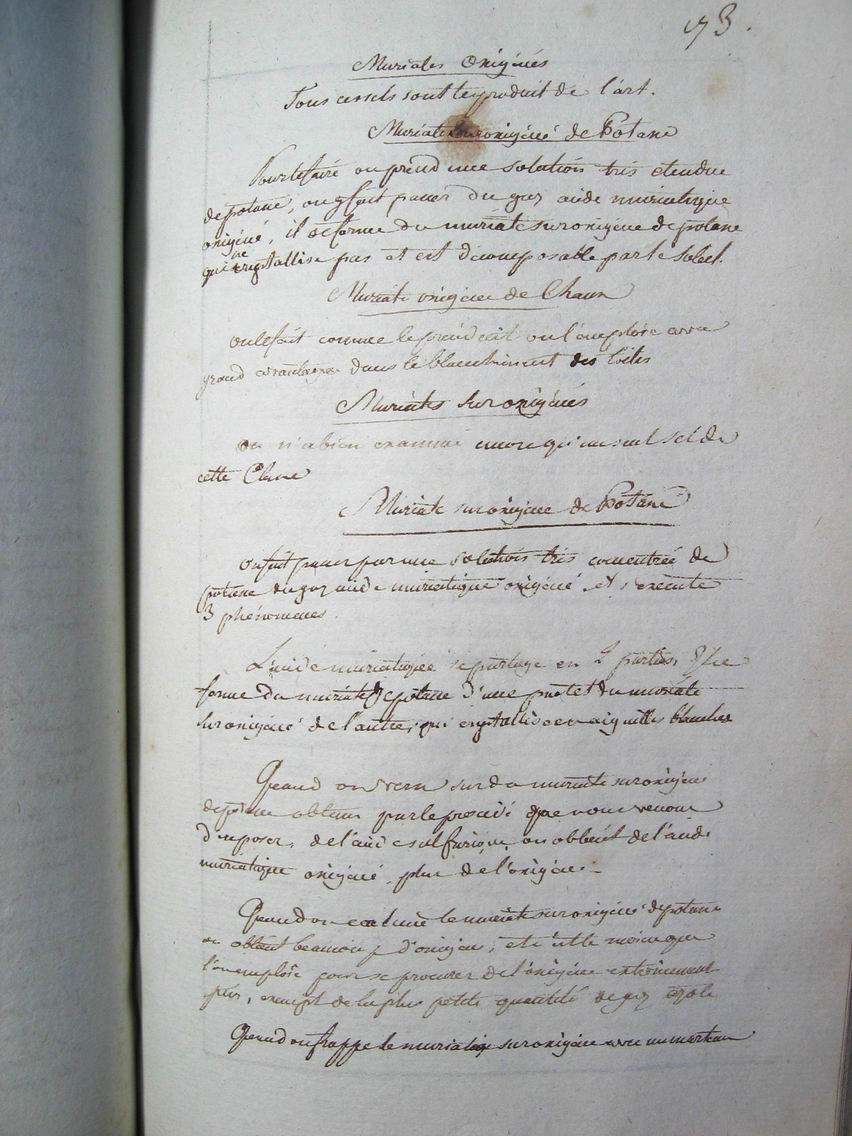 73.
Muriates Oxigénés
Tous ces sels sont le produit de l'art.
Muriate suroxigéné de Potasse
Pour le faire on prend une solution très étendue
de potasse, on y fait passer du gaz acide muriatique
oxigéné, il se forme du muriate suroxigéné de potasse
qui ne crystallise pas et est décomposable par le Soleil.
Muriate oxigéné de Chaux
on le fait comme le précédent on l'emploie avec
grand avantage dans le blanchiment des toiles
Muriates Suroxigénés
on n'a bien examiné encore qu'un seul sel de
cette Classe
Muriate suroxigéné de Potasse
on fait passer par une solution très concentrée de
potasse du gaz acide muriatique oxigéné et s'exécute
3 phénomenes.
L'acide muriatique se partage en 2 parties, Il se
forme du muriate de potasse d'une part et du muriate
suroxigéné de l'autre, qui crystallise en aiguilles blanches
Quand on verse sur du muriate suroxigéné
de potasse obtenu par le procédé que nous venons
d'exposer, de l'acide sulfurique on obtient de l'acide
muriatique oxigéné plus de l'oxigène.
Quand on calcine le muriate suroxigéné de potasse
on obtient beaucoup d'oxigène, et c'est le moien que
l'on emploie pour se procurer de l'oxigène extrêmement
pur, exempt de la plus petite quantité de gaz azote
Quand on frappe le muriate suroxigéné avec un marteau